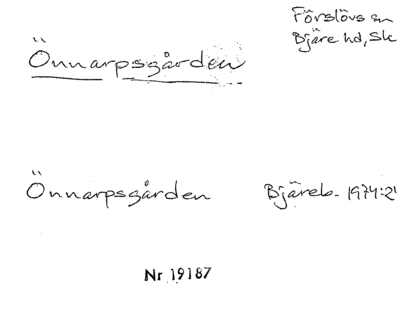 Förslövs sn
Bjäre hd, Sk
Önnarpsgården
Önnarpsgården Bjäreb. 1974:2
Nr 19187